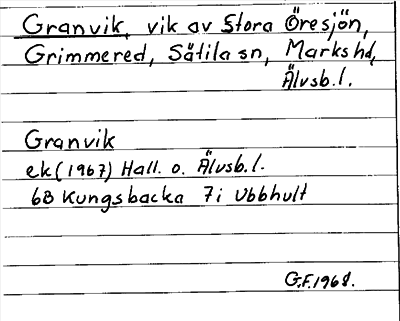 Granvik, vik av Stora Öresjön,
Grimmered, Sätila sn, Marks hd,
Älvsb.l.
Granvik
ek (1967) Hall. o. Älvsb.l.
6B Kungsbacka 7i Ubbhult
G.F. 1968.